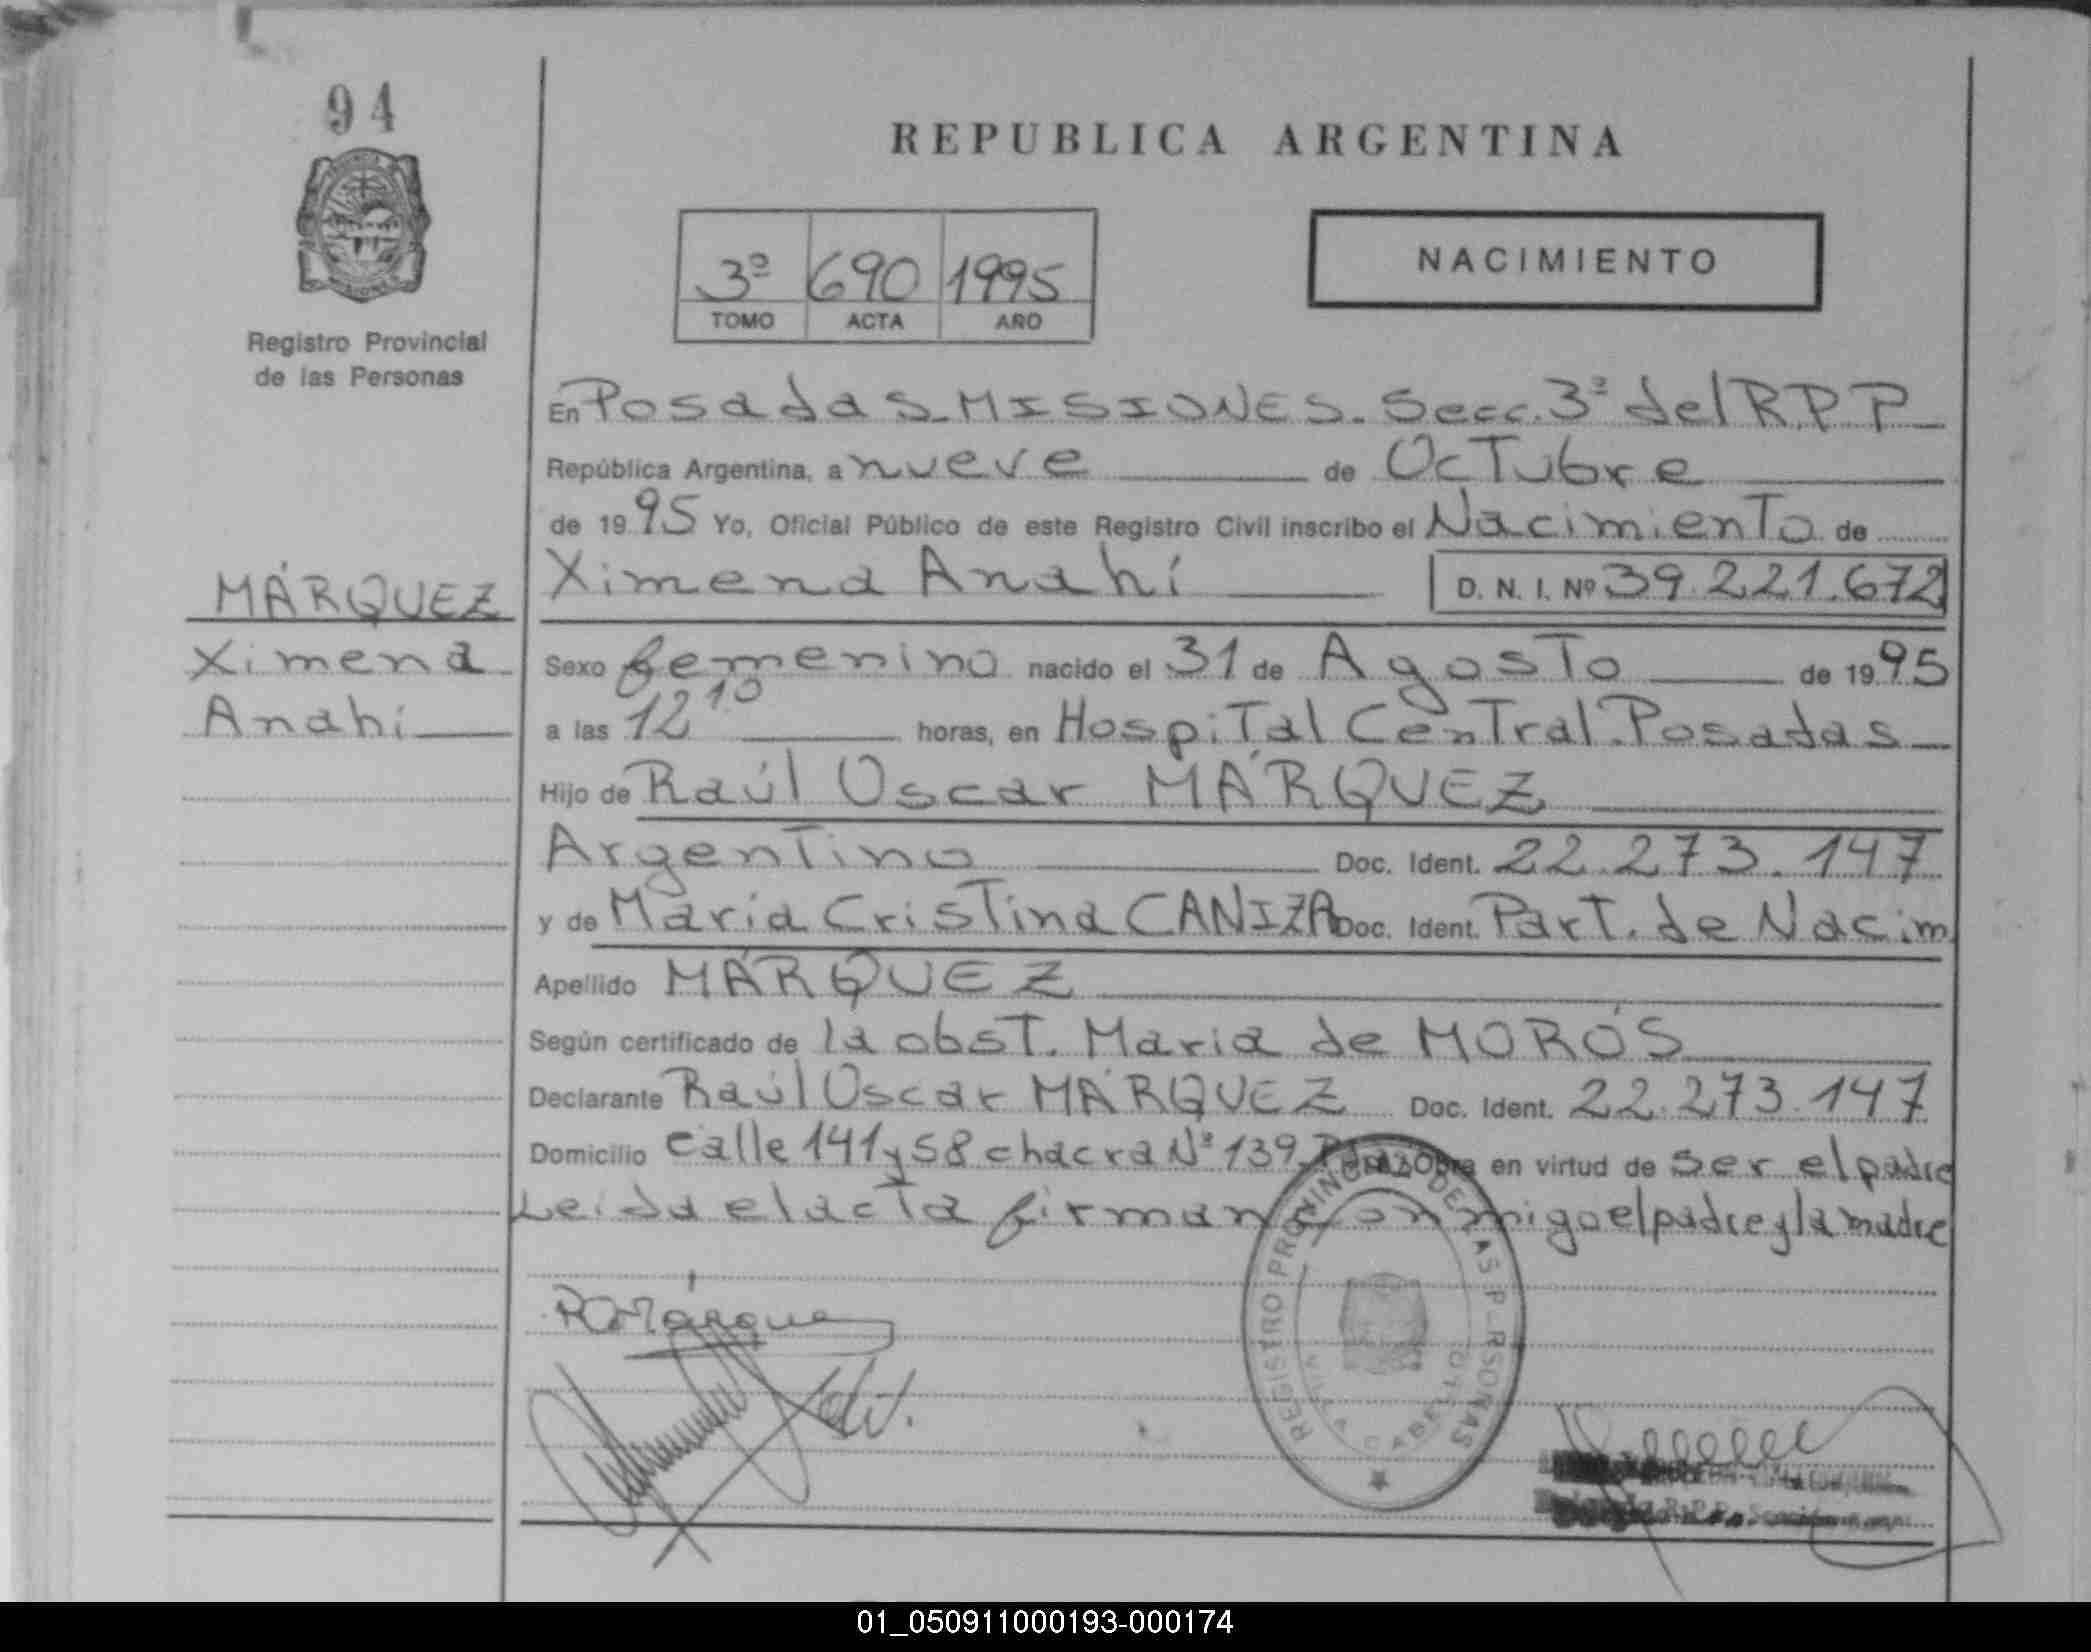 94
REPUBLICA ARGENTINA
3º 690 1995
TOMO ACTA AÑO
NACIMIENTO
Registro Provincial
de las Personas
En Posadas-MISIONES. Secc. 3ª del R.P.P
República Argentina, a nueve de Octubre
de 1995 Yo, Oficial Público de este Registro Civil inscribo el Nacimiento de
Ximena Anahí D. N. I. Nº 39.221.672
MÁRQUEZ
Ximena
Anahí
Sexo femenino nacido el 31 de Agosto de 1995
a las 12 10 horas, en Hospital Central.Posadas
Hijo de Raúl Oscar MÁRQUEZ
Argentino Doc. Ident. 22.273.147
y de María Cristina CANIZA Doc. Ident. Part. de Nacim
Apellido MÁRQUEZ
Según certificado de la obst. Maria de MORÓS
Declarante Raúl Oscar MÁRQUEZ Doc. Ident. 22.273.147
Domicilio calle 141 y 58 chacra Nº 139 en virtud de ser el padre
Leida el acta firman conmigo el padre y la madre
REGISTRO PROVINCIAL DE LAS PERSONAS
ROMárquez
01_050911000193-000174